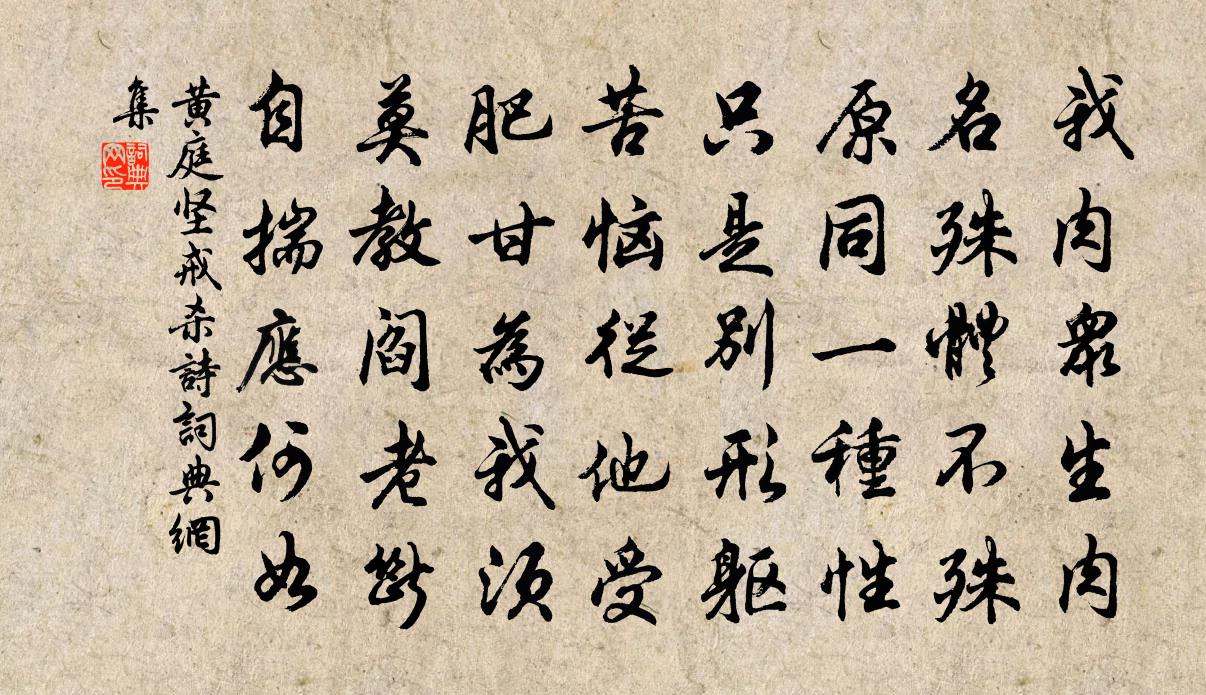 我肉衆生肉
名殊體不殊
原同一種性
只是别形躯
苦恼從他受
肥甘為我須
莫教阎老斷
自揣應何如
黄庭坚戒杀詩詞典網
集
詞典
网印